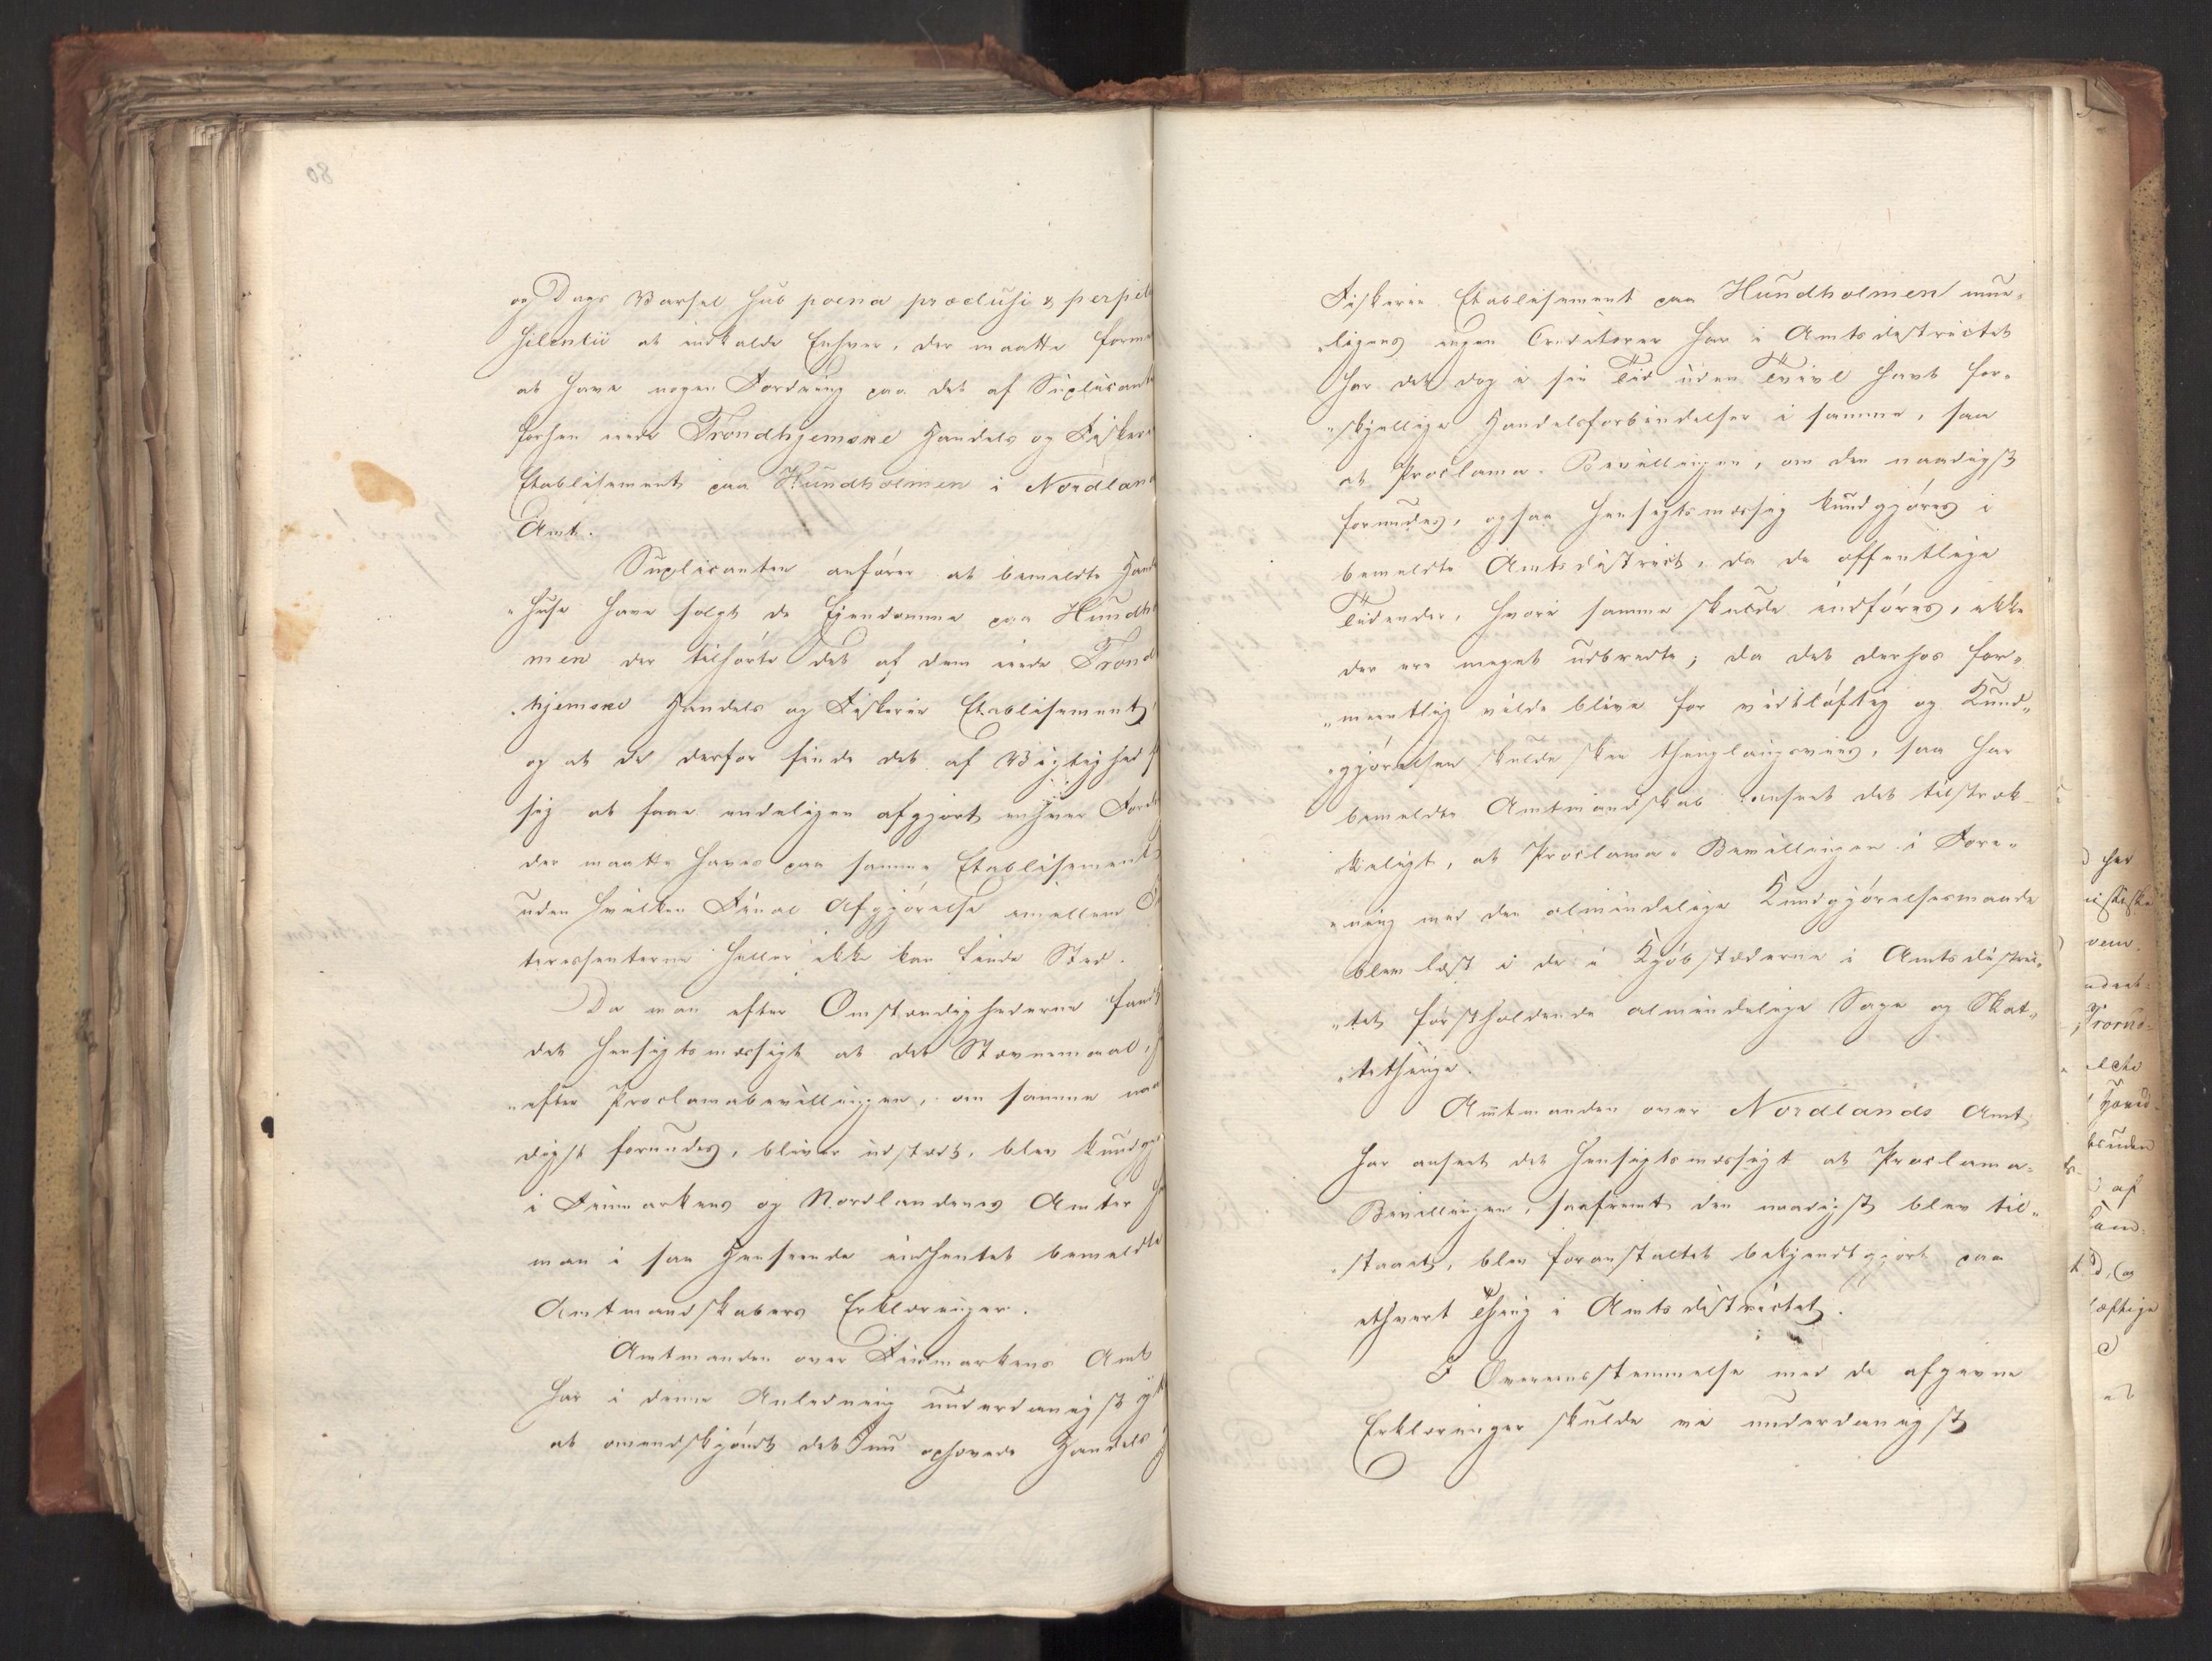 80
og Dags Varsel sub poena præclusi & perpet
silentii at indkalde Enhver, der maatte forme
at have nogen Fordring paa det af Suplicant
forhen eiede Trondhjemske Handels og Fisker
Etablisement paa Hundholmen i Nordland
Amt.
Suplicanten anfører at bemeldte Hand
"huse have solgt de Eiendomme paa Hundh
men der tilhørte det af dem eiede Trond
"hjemske Handels og Fiskerie Etablisement,
og at de derfor finde det af Vigtighed f
sig at faae endeligen afgjort enhver Ford
der maatte haves paa samme Etablisement
uden hvilken Final Afgjørelse imellem I
teressenterne heller ikke kan finde Sted.
Da man efter Omstændighederne fandt
det hensigtsmæssigt at det Stævnemaal, h
"efter Proclamabevillingen, om samme naa
digst forundes, bliver udstædt, blev kundgj
i Finmarkens og Nordlandenes Amter h
man i saa Henseende indhentet bemeldte
Amtmandskabers Erklæringer.
Amtmanden over Finmarkens Amt
har i denne Anledning underdanigst yt
at omendskjøndt det nu ophævede Handels
Fiskerie Etablisement paa Hundholmen mue"
"ligens ingen Creditorer har i Amtsdistrictet
har det dog i sin Tid uden Tvivl havt for"
"skjellige Handelsforbindelser i samme, saa
at Proclama-Bevillingen, om den naadigst
forundes, ogsaa hensigtsmæssig kundgjøres i
bemeldte Amtsdistrict, da de offentlige
Tidender, hvori samme skulde indføres, ikke
der ere meget udbredte; da det derhos for"
"meentlig vilde blive for vidtløftig og Kund"
"gjørelsen skulde skee thinglaugsviis, saa har
bemeldte Amtmandskab anseet det tilstræk-
keligt, at Proclama-Bevillingen i Fore"
"ning med den almindelige Kundgjørelsesmaade
blev læst i de i Kjøbstæderne i Amtsdistric"
"tet førstholdende almindelige Sage og Skat"
"tethinge.
Amtmanden over Nordlands Amt
har anseet det hensigtsmæssigt at Proclama-
Bevillingen, saafremt den naadigst blev til"
"staaet, blev foranstaltet bekjendtgjort paa
ethvert Thing i Amtsdistrictet.
I Overeensstemmelse med de afgivne
Erklæringer skulde vi underdanigst